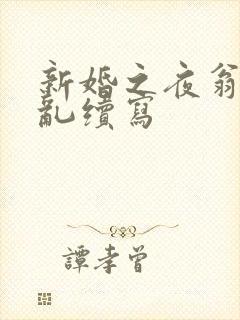 新婚之夜翁
亂續寫
譚孝曾